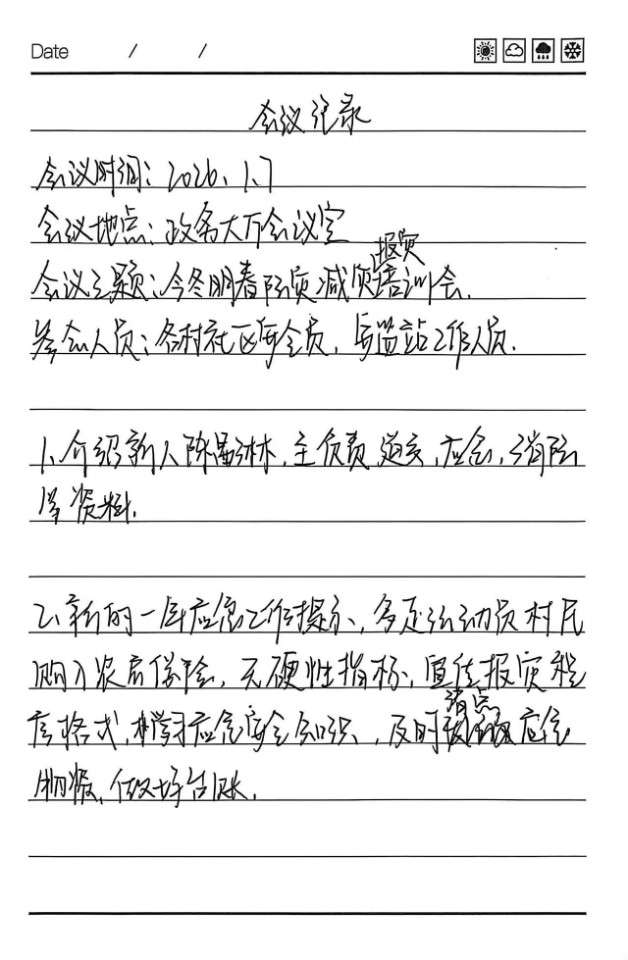 Date / /
会议记录
会议时间：2026.1.7
会议地点：政务大厅会议室
报灾
会议主题：今冬明春防灾减灾培训会.
参会人员：各村社区安全员，安监站工作人员.
1.介绍新人陈 林，主负责 道交，应急，消防
等资料.
2.新的一年应急工作提示，多走访动员村民
购入农房保险，无硬性指标，宣传报灾程
序格式，学习应急安全知识，及时
清点
应急
物资，做好台账.